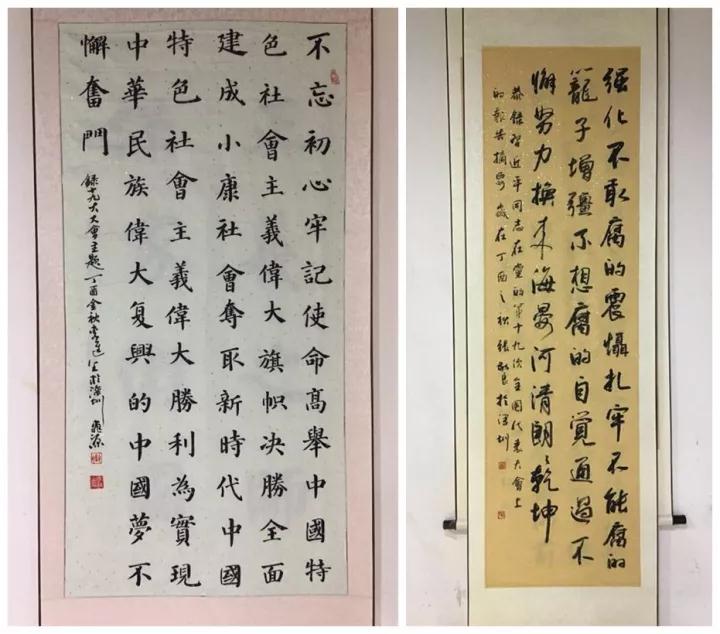 不忘初心牢記使命髙舉中國特
色社會主義偉大旗幟決勝全面
建成小康社會奪取新時代中國
特色社會主義偉大勝利為實現
中華民族偉大复興的中國夢不
懈奮門
錄十九大大會主題丁酉金秋於深圳
强化不敢腐的震懾扎牢不能腐的
籠子增彊不想腐的自覺通過不
懈努力換来海晏河清朗々乾坤
恭錄習近平同志在黨的第十九次全國代表大會上
的報告摘要歲在丁酉之秋於深圳